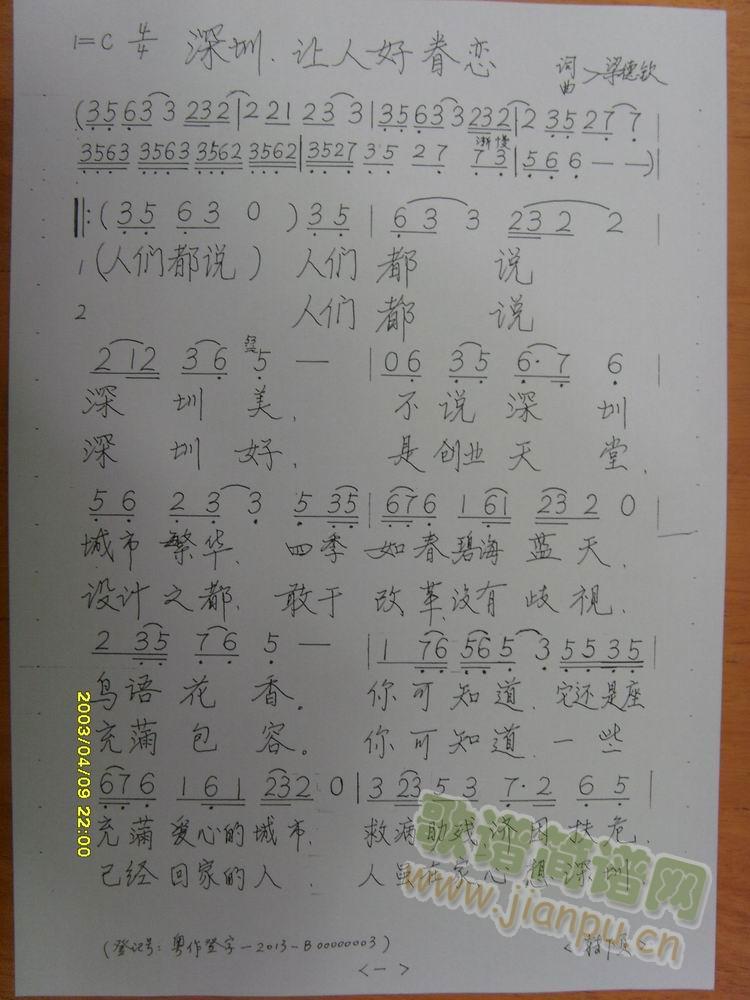 1=C 4/4 深圳.让人好眷恋
词曲>梁德钦
(3563 3 232|2 221 23 3|3563 3 232|2 35 27 7|
渐慢
3563 3563 3562 3562|3527 35 27 73|566——)
‖:(35 63 0)35|63 3 232 2
1(人们都说) 人们 都 说
2 人们 都 说
2 12 36 5 —|06 35 6·7 6
深 圳 美. 不说深 圳
深 圳 好. 是创业天 堂.
56 23 3 5 35|676 1 61 23 2 0|
城市 繁华. 四季 如春碧海 蓝天.
设计之都. 敢于 改革.没有 歧视.
2 35 76 5 —|1 76 565 3 5535|
鸟语花香。 你可知道.它还是座
充满包容。 你可知道.一些
676 161 232 0|3 23 53 7·2 65|
充满 爱心的城市. 救病助残.济困扶危.
已经 回家的人. 人虽在家.心想深圳.
(登记号:粤作登字-2013-B00000003)
<一>
2003/04/09 22:00
歌谱简谱网
www.jianpu.cn